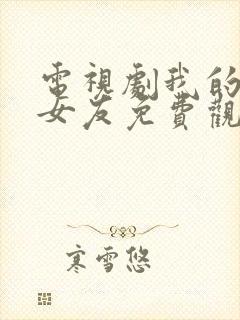 電視劇我的
女友免費觀
寒雪悠